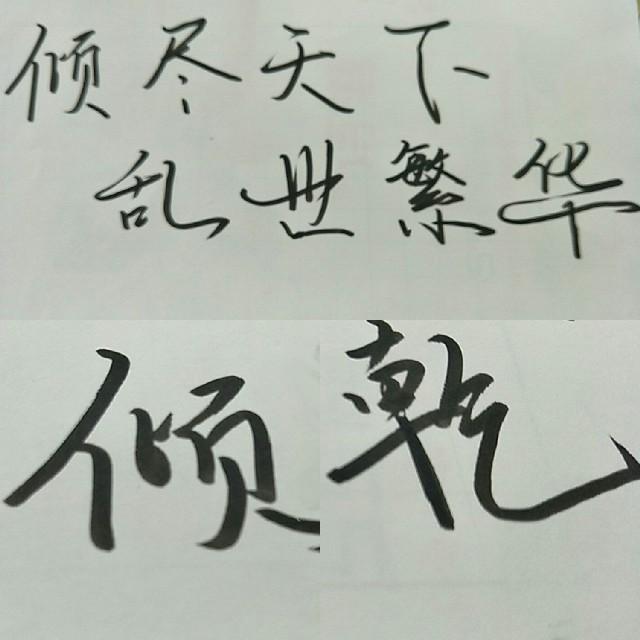 倾尽天下
乱世繁华
倾
乾